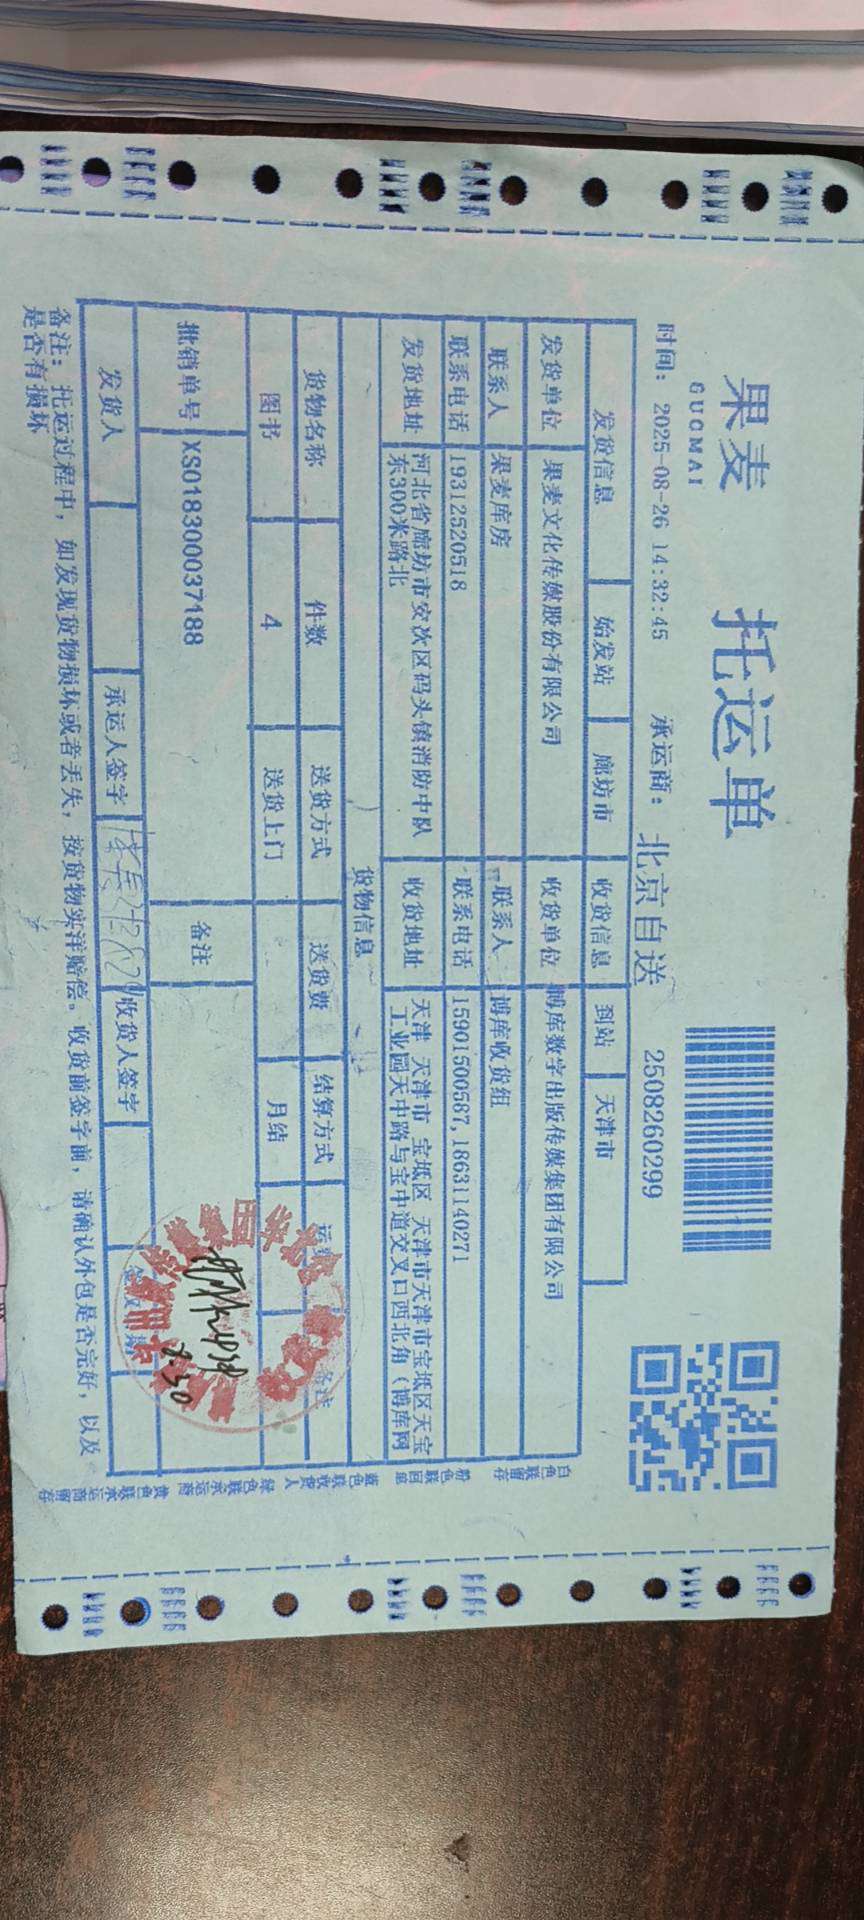 果麦 托运单
GUOMAI
时间: 2025-08-26 14:32:45 承运商: 北京自送 2508260299
发货信息 始发站 廊坊市 收货信息 到站 天津市
发货单位 果麦文化传媒股份有限公司 收货单位 博库数字出版传媒集团有限公司
联系人 果麦库房 联系人 博库收货组
联系电话 19312520518 联系电话 15901500587,18631140271
发货地址 河北省廊坊市安次区码头镇消防中队东300米路北 收货地址 天津 天津市 宝坻区 天津市天津市宝坻区天宝工业园天中路与宝中道交叉口西北角(博库网
货物信息
货物名称 件数 送货方式 送货费 结算方式 备注
图书 4 送货上门 月结
批销单号 XS018300037188 备注
发货人 承运人签字 收货人签字
备注: 托运过程中, 如发现货物损坏或者丢失, 按货物实洋赔偿。收货前签字前, 请确认外包是否完好, 以及
是否有损坏
白色联留存 粉色联回单 蓝色联收货人 绿色联承运商 黄色联承运商留存